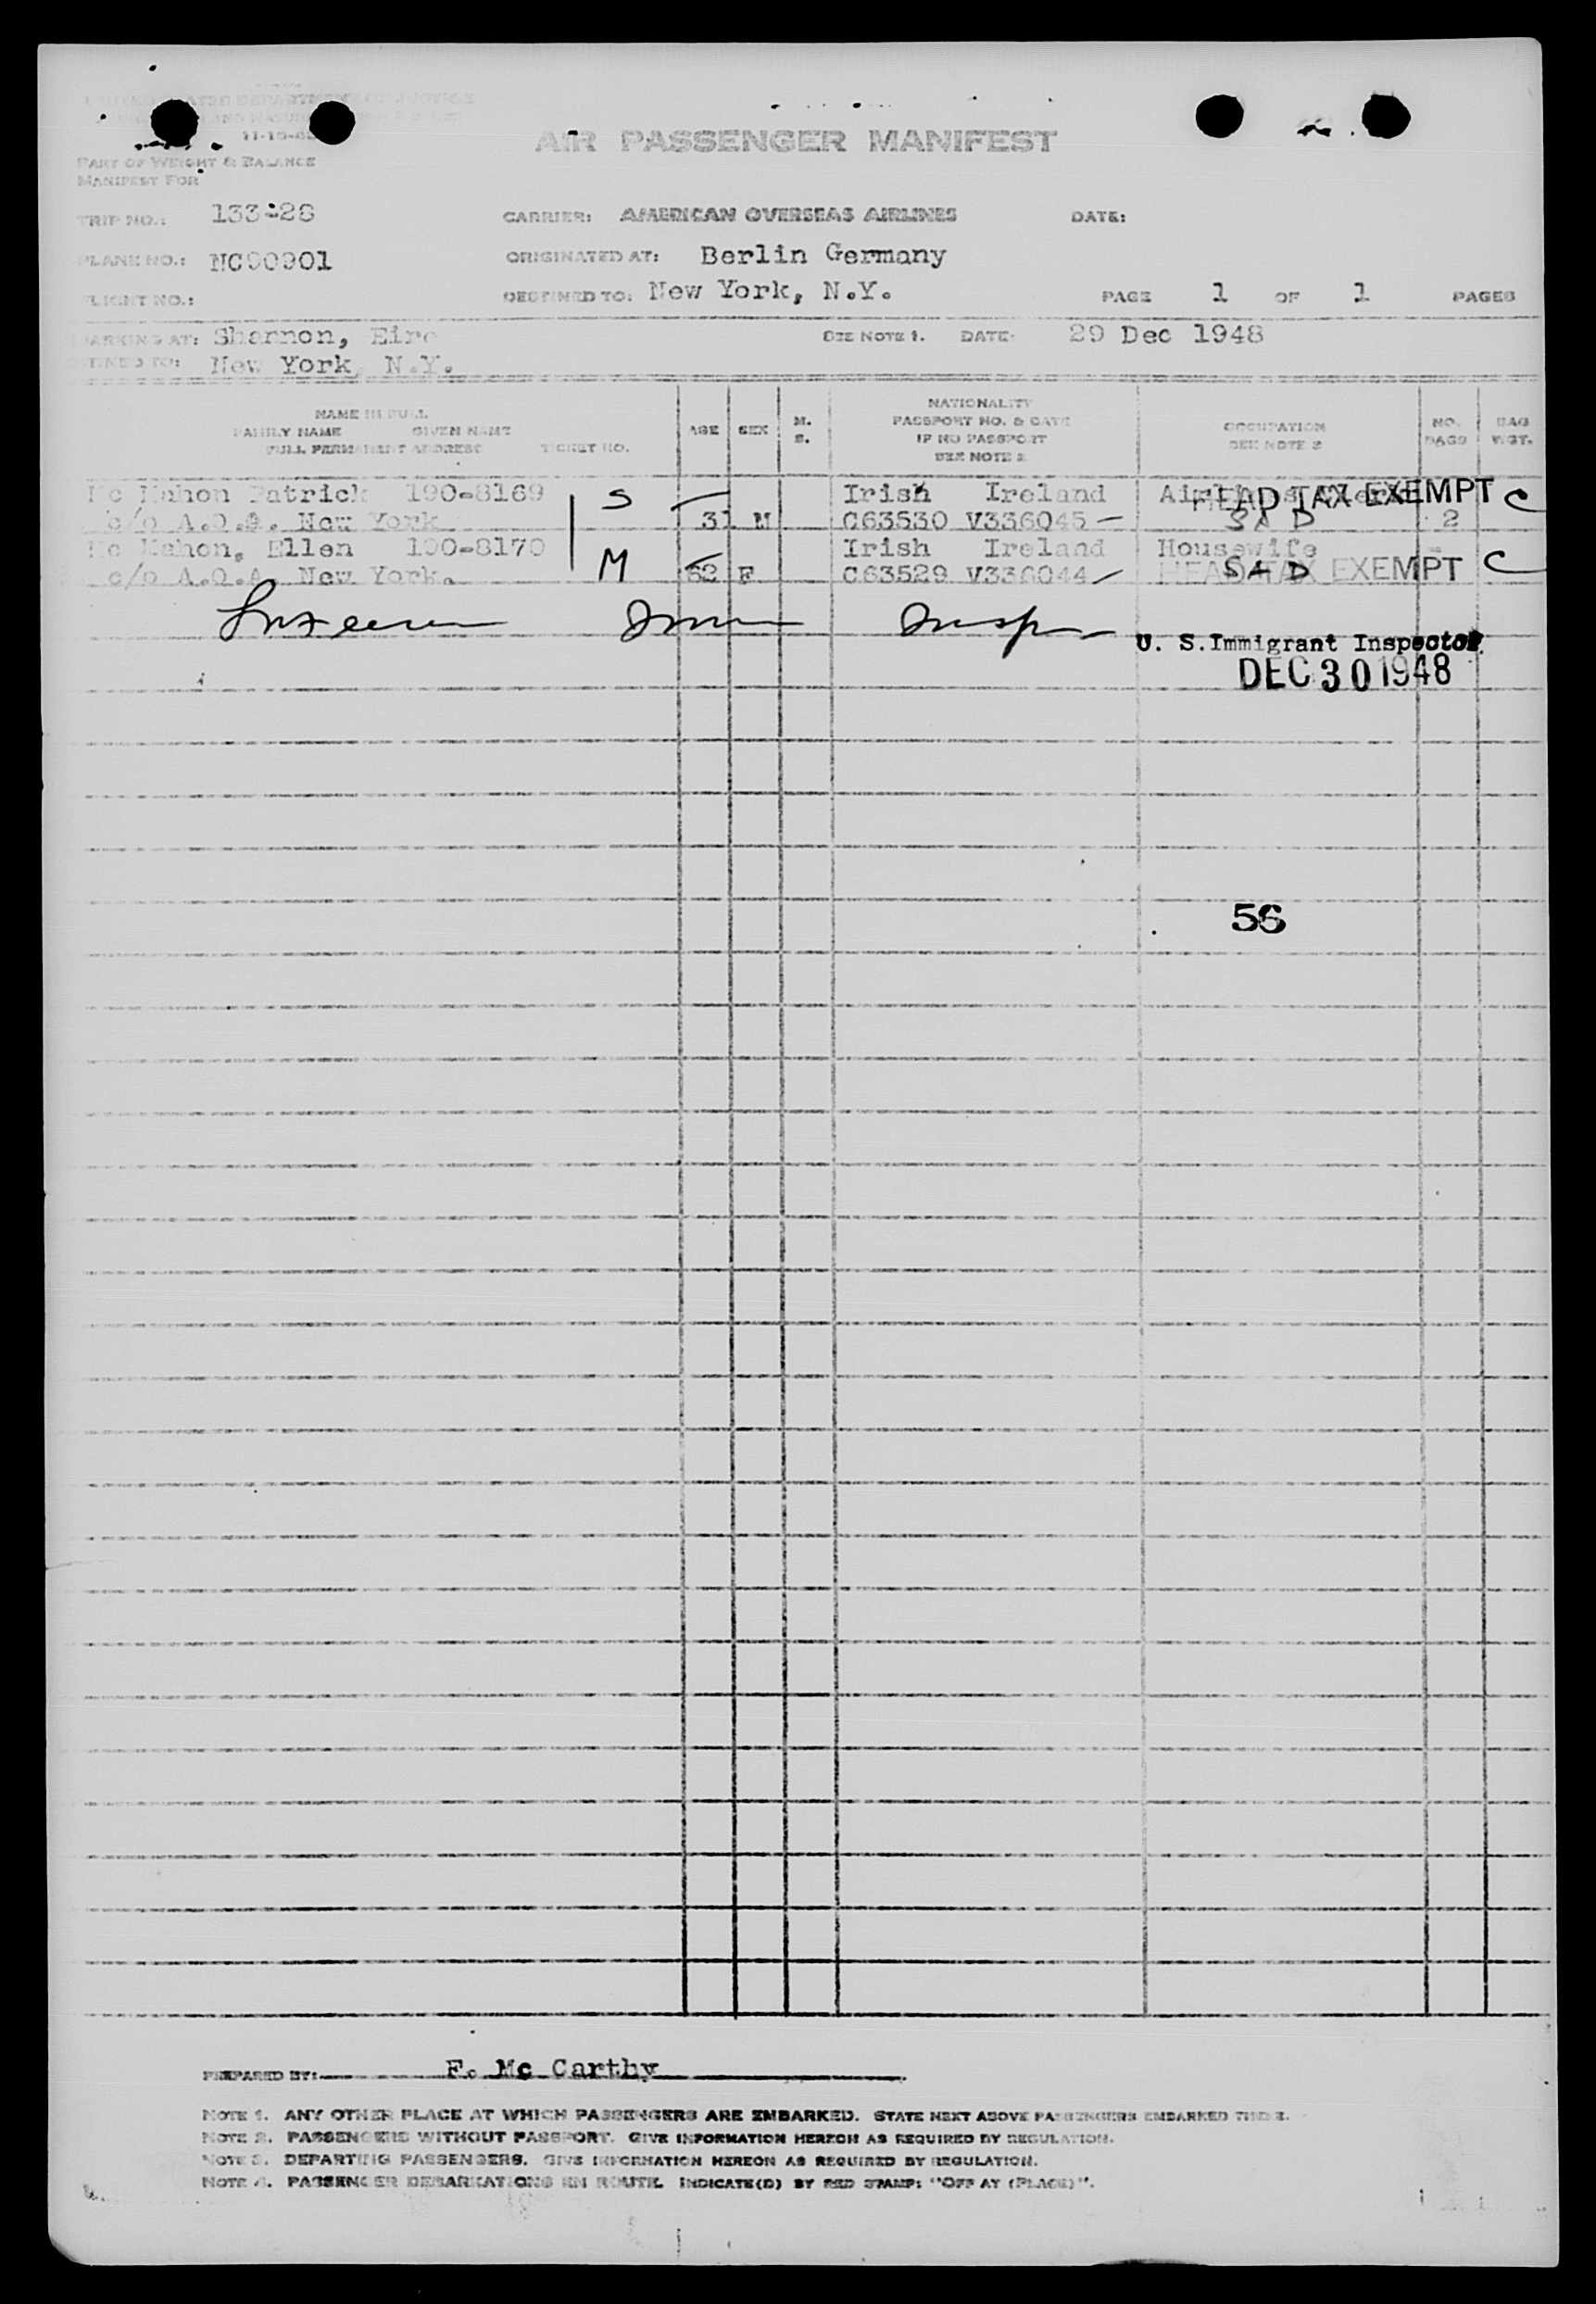 UNITED STATES DEPARTMENT OF JUSTICE
AIR PASSENGER MANIFEST
PART OF WEIGHT & BALANCE
MANIFEST FOR
TRIP NO.: 133-28 CARRIER: AMERICAN OVERSEAS AIRLINES DATE:
PLANE NO.: NC90901 ORIGINATED AT: Berlin Germany
FLIGHT NO.: DESTINED TO: New York, N.Y. PAGE 1 OF 1 PAGES
EMBARKING AT: Shannon, Eire SEE NOTE 1. DATE: 29 Dec 1948
DESTINED TO: New York, N.Y.
NAME IN FULL
FAMILY NAME GIVEN NAME
FULL PERMANENT ADDRESS TICKET NO.
AGE SEX M. S.
NATIONALITY
PASSPORT NO. & DATE
IF NO PASSPORT
SEE NOTE 2
OCCUPATION
SEE NOTE 2
NO. BAGS
BAG WGT.
Mc Mahon Patrick 190-8169 S Irish Ireland HEAD TAX EXEMPT C
c/o A.O.A. New York 31 M C63530 V336045 2
Mc Mahon, Ellen 190-8170 Irish Ireland Housewife
c/o A.O.A. New York. M 62 F C63529 V336044 HEAD TAX EXEMPT C
U. S. Immigrant Inspector.
DEC 30 1948
56
PREPARED BY: F. Mc Carthy
NOTE 1. ANY OTHER PLACE AT WHICH PASSENGERS ARE EMBARKED. STATE NEXT ABOVE PASSENGERS EMBARKED THERE.
NOTE 2. PASSENGERS WITHOUT PASSPORT. GIVE INFORMATION HEREON AS REQUIRED BY REGULATION.
NOTE 3. DEPARTING PASSENGERS. GIVE INFORMATION HEREON AS REQUIRED BY REGULATION.
NOTE 4. PASSENGER DEBARKATIONS EN ROUTE. INDICATE(D) BY RED STAMP: "OFF AT (PLACE)".